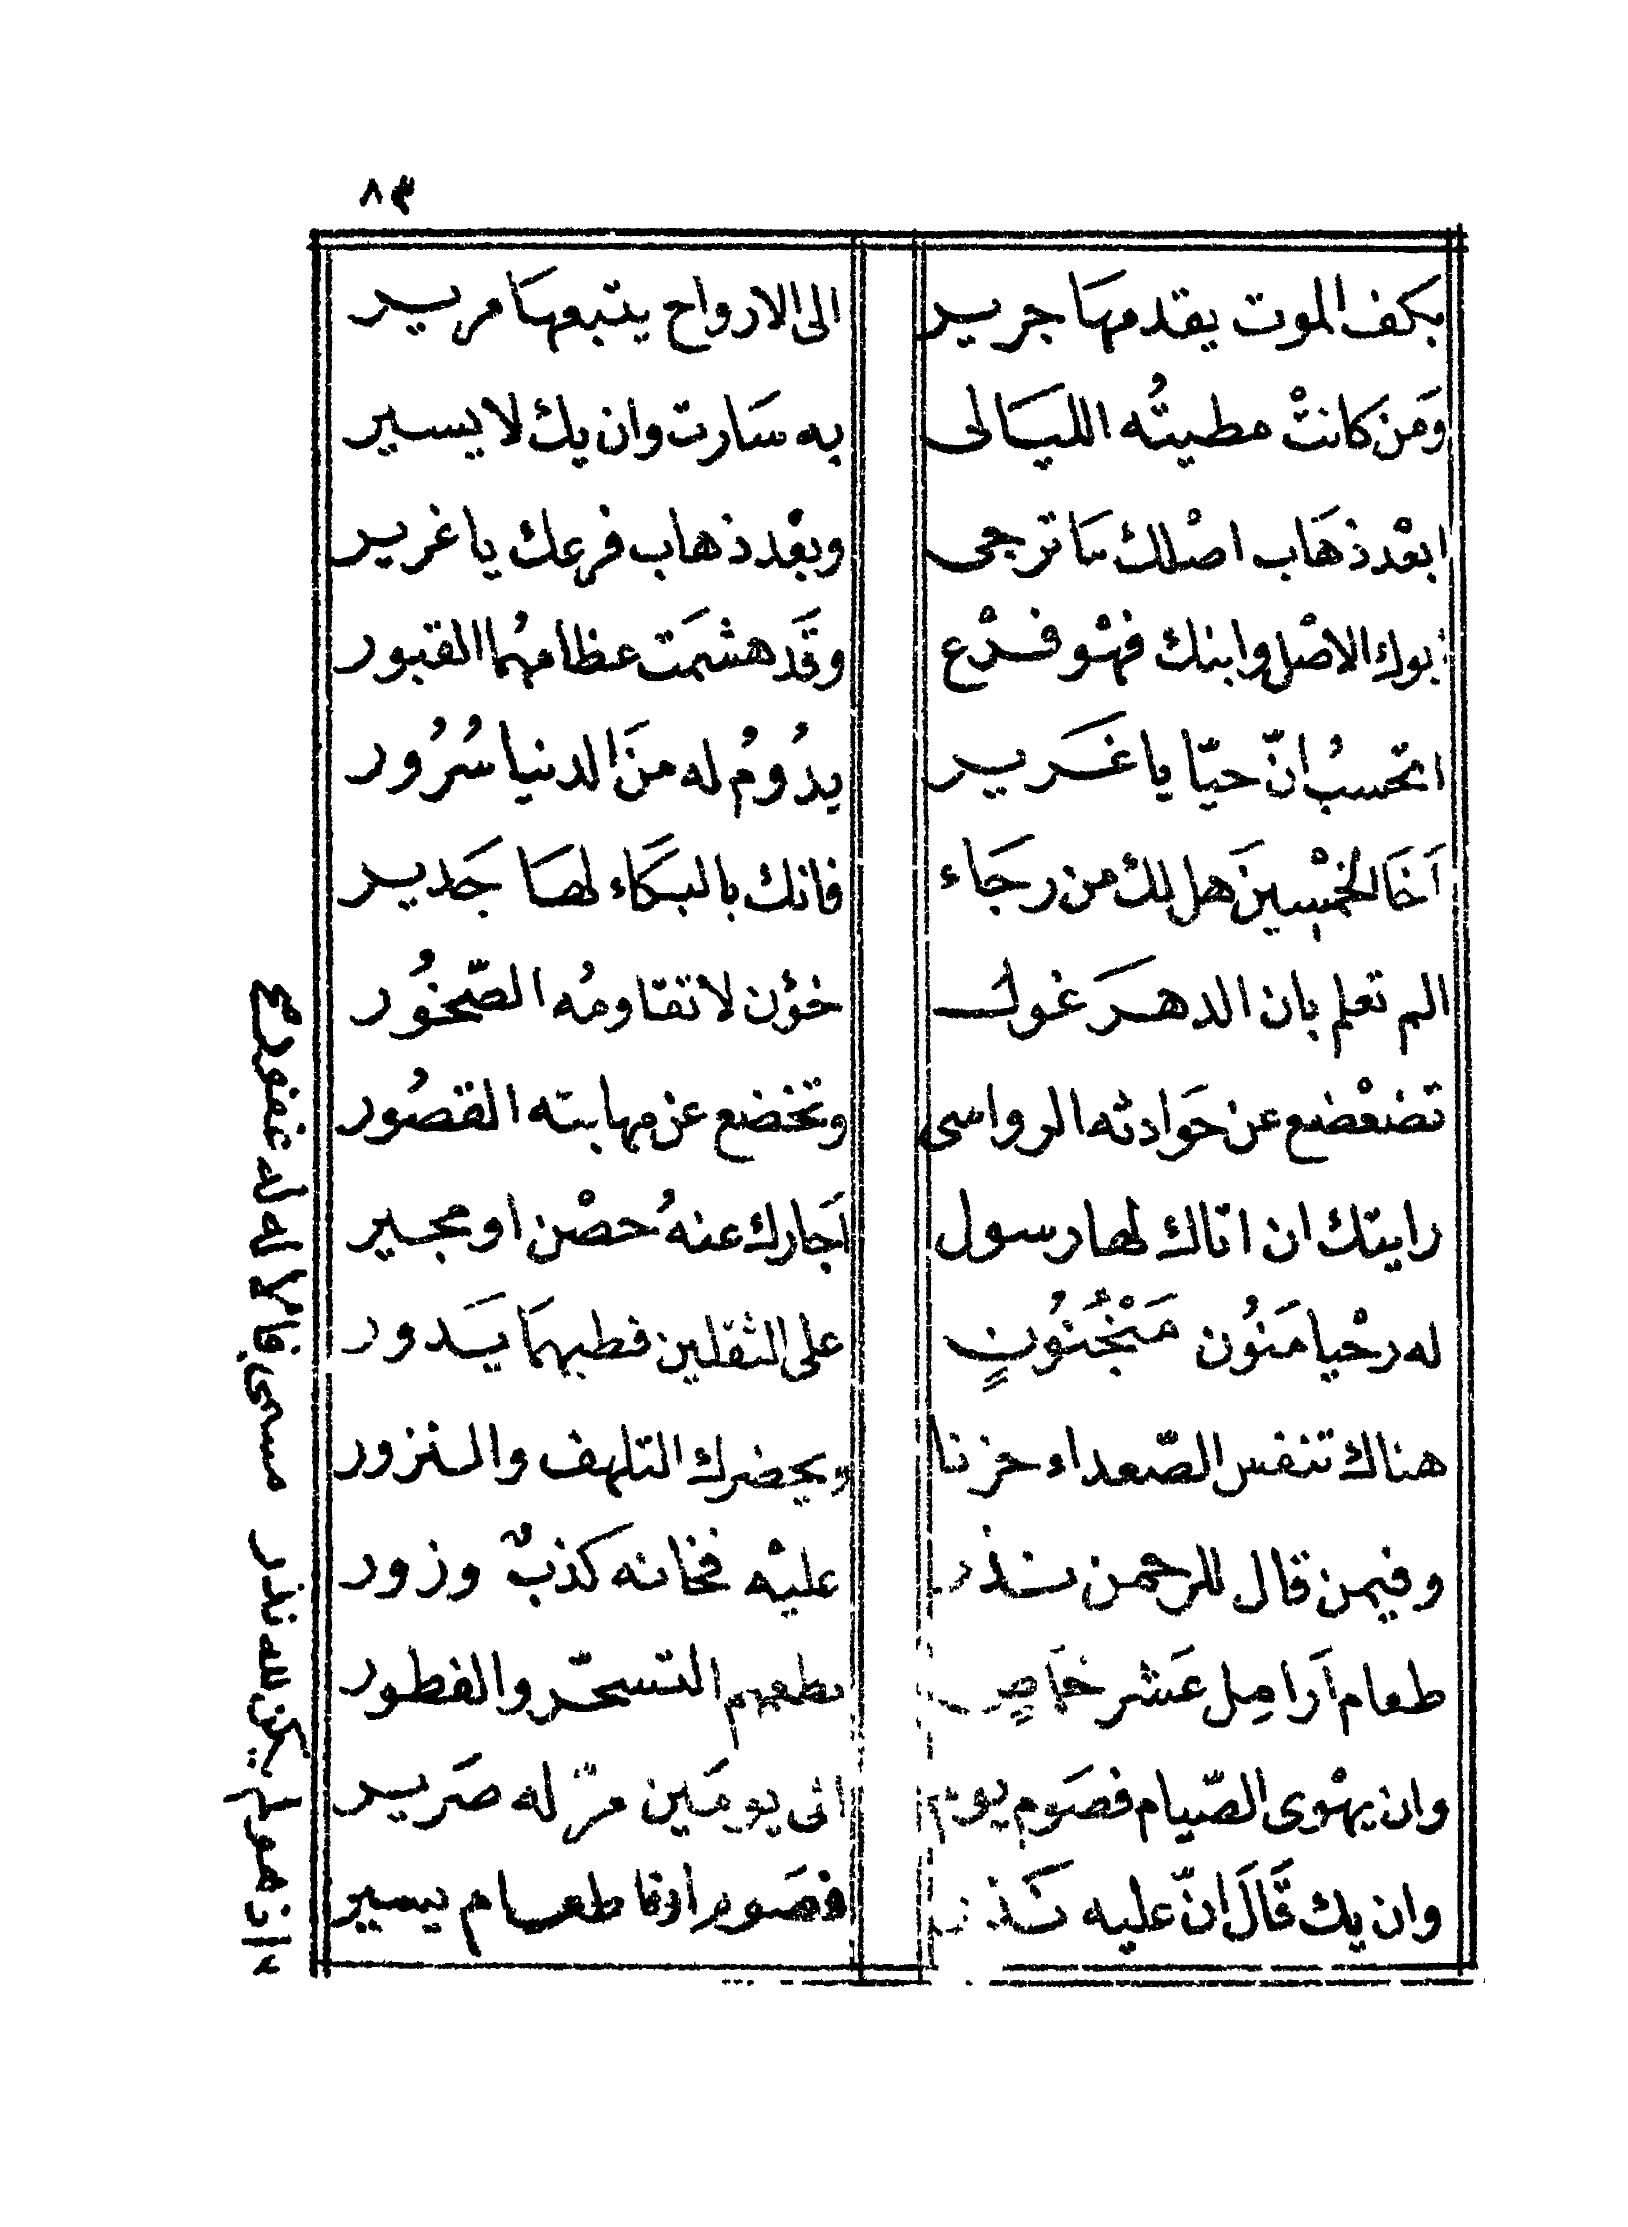 ٨٣
بكف الموت يقدمهَا جرير الى الارواح يتبعهَا مرير
وَمَن كانتْ مطيتُه الليَالى به سَارت وان يك لا يسير
ابعْد ذهَاب اصْلك مَا ترجى وبعْد ذهاب فرعك يا غرير
ابوك الاصْل وابنك فهْو فرْع وقَد هشمَت عظامهُما القبور
اتحسبُ انّ حيّا يا غَرير يدُومُ له منَ الدنيا سُرُور
اَخَا الخمْسِينَ هل لك من رجَاء فانك بالبكَاء لهَا جَدير
الم تعلم بان الدهرَ غول خؤن لا تقاومُه الصّخُور
تضعْضع عن حوَادثه الرواسى وتخضع عن مهابته القصُور
رايتك ان اتاك لها رسول اَجارك عنهُ حصْن او مجير
له رحْيا مَنُون مَنْجَنُونٍ على الثقلين قطبهمَا يَدور
هناك تنفس الصّعداء حزنا ويحضرك التلهف والنزور
وفيمن قال للرحمن نذر عليْه فخانه كذبٌ وزور
طعام اَرامِل عَشر خمَاصٍ يطعمهم التسحّر والفطور
وان يهْوى الصّيام فصَوم يوم اتى يومَين مرّ له صَرير
وان يك قَالَ انّ عليه نَذر فصَوم او فاطعام يسير
٢ ان هو لم يكن لله نذر مسمى فالاله له غفور ع